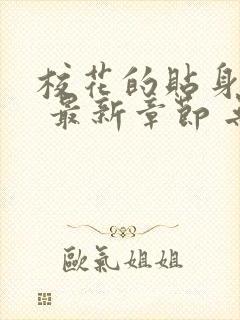 校花的貼身
最新章節
歐氣姐姐